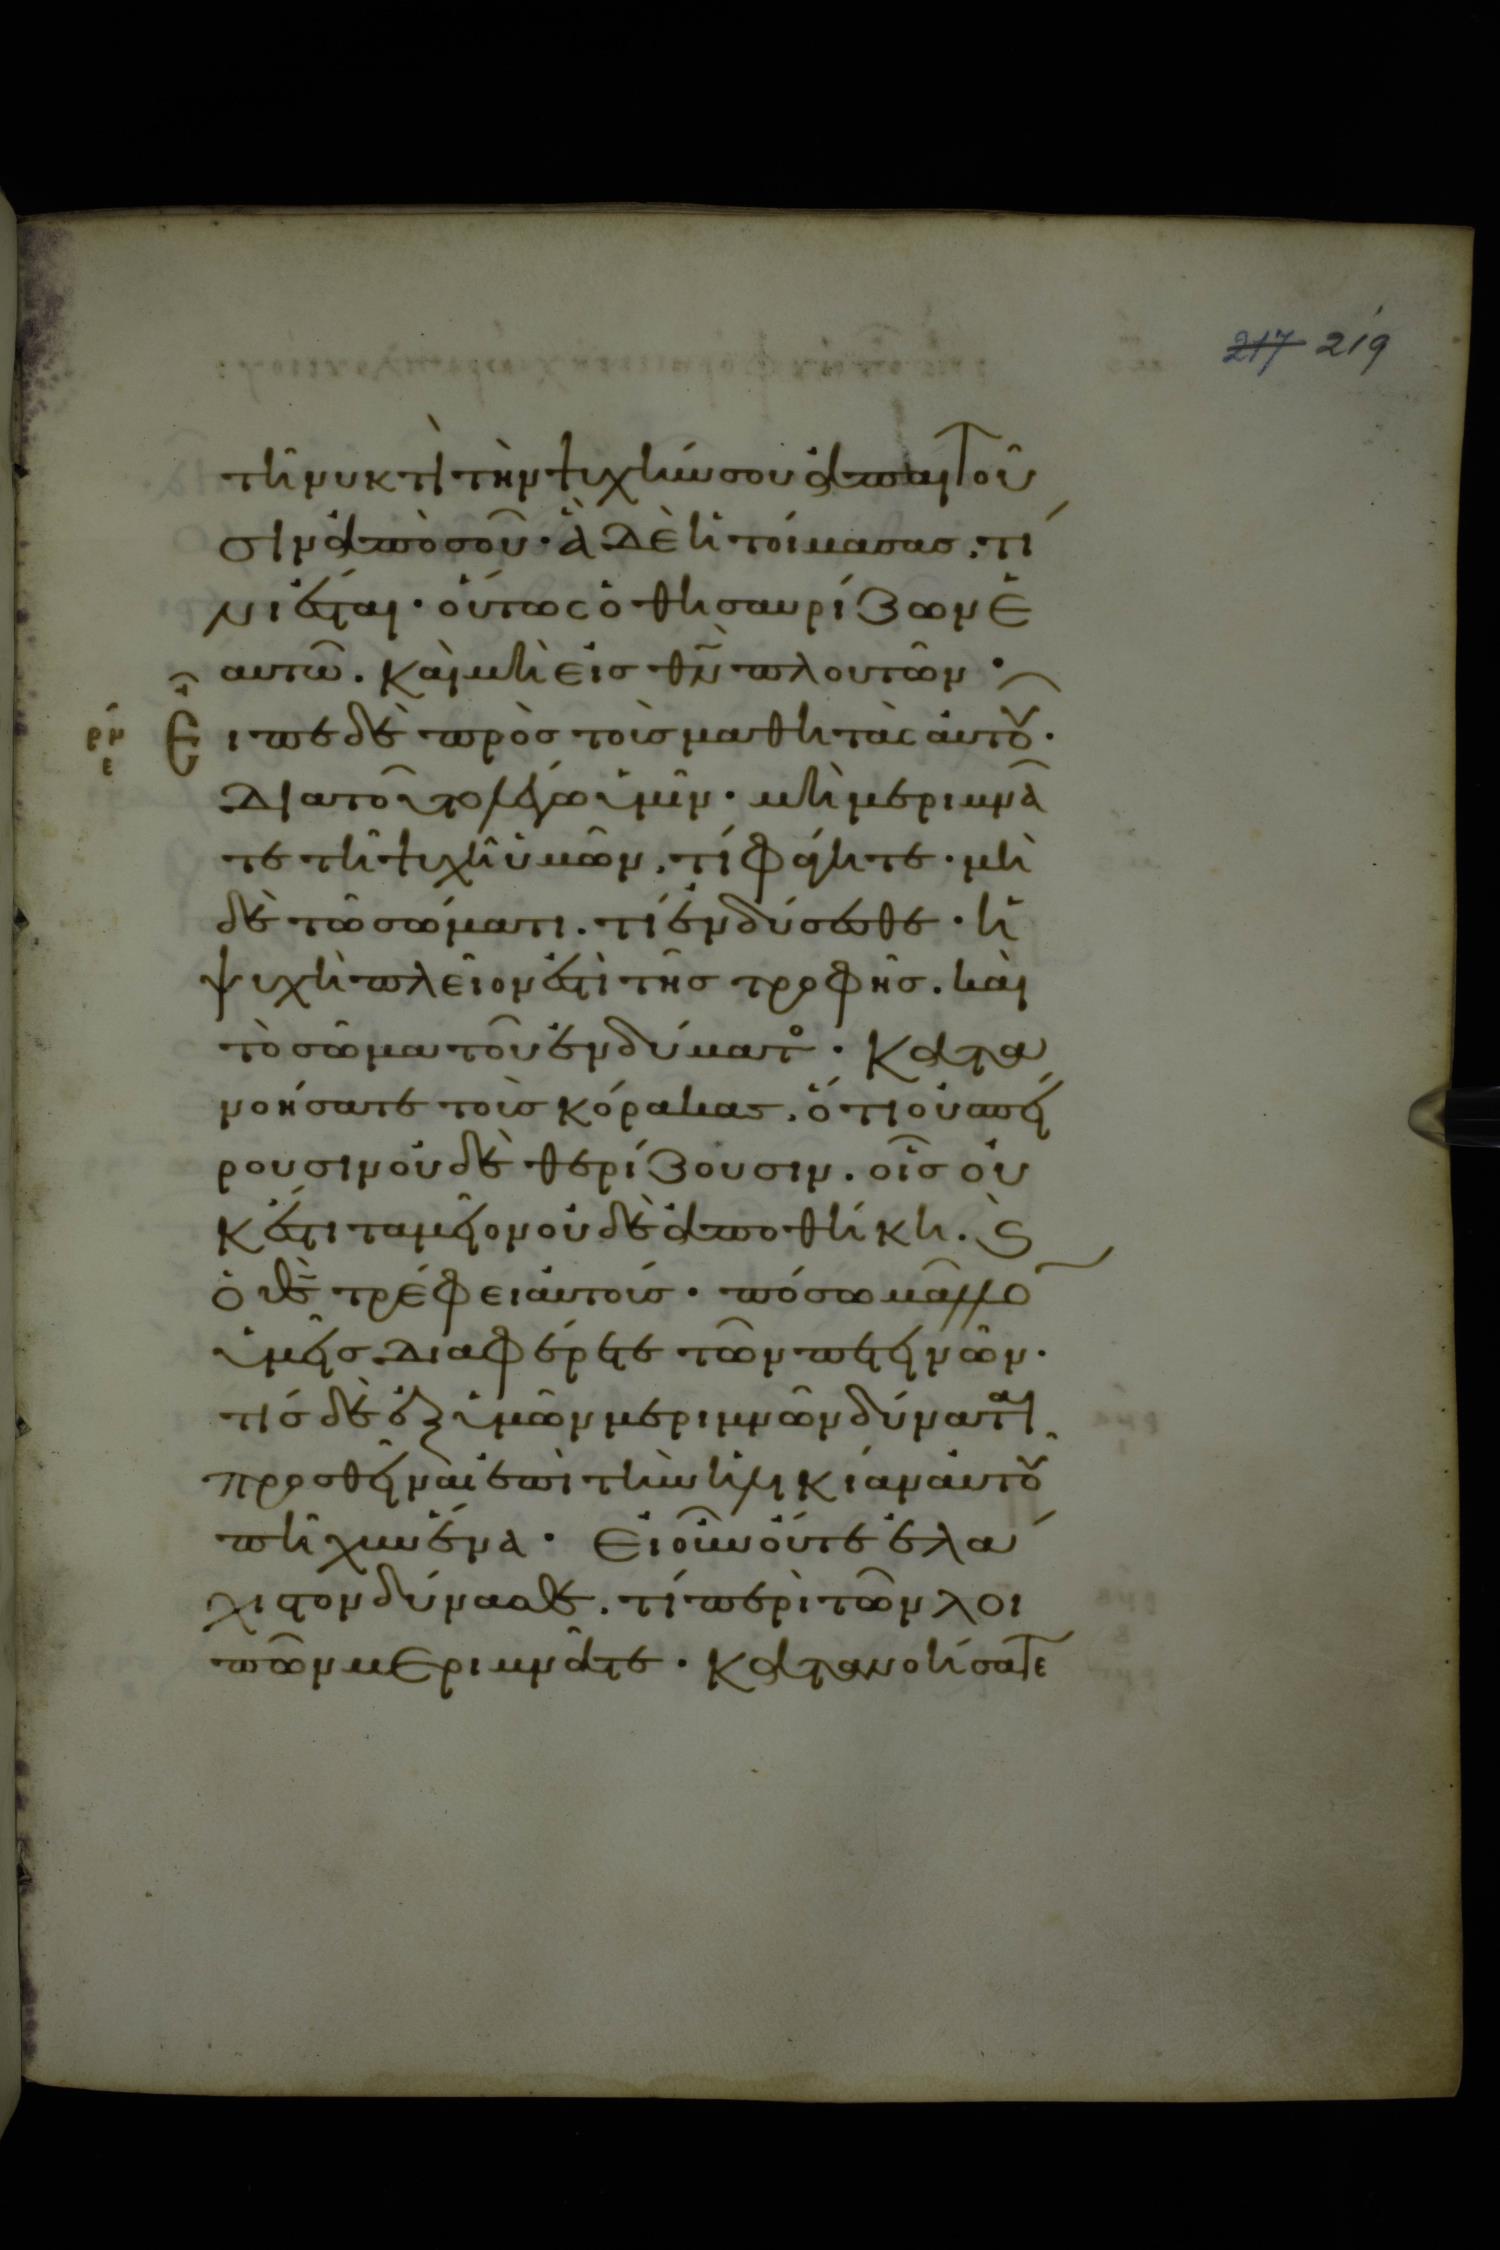 217 219
τῆ νυκτὶ τὴν ψυχήν σου ἀπαιτοῦ
σιν ἀπὸ σοῦ· ἃ δὲ ἡτοίμασας, τί
νι ἔσται· οὕτως ὁ θησαυρίζων ἑ
αυτῶ. καὶ μὴ εἰς θν̅ πλουτῶν·
ρν
ε
Ειπε δὲ πρὸς τοὺς μαθητὰς αὐτοῦ·
Διατοῦτο λέγω ὑμῖν· μὴ μεριμνᾶ
τε τῆ ψυχῆ ὑμῶν, τί φάγητε· μὴ
δὲ τῶ σώματι. τί ἐνδύσησθε· ἡ
ψυχὴ πλεῖον ἐστὶ τῆς τροφῆς. καὶ
τὸ σῶμα τοῦ ἐνδύματος· Κατα
νοήσατε τοὺς κόρακας, ὅτι οὐ σπεί
ρουσιν οὐδὲ θερίζουσιν. οἷς οὐ
κ ἔστι ταμεῖον οὐδὲ ἀποθήκη. ϗ̀
ὁ θς̅ τρέφει αὐτούς· πόσω μᾶλλον
ὑμεῖς διαφέρετε τῶν πετεινῶν·
τίς δὲ ἐξ ὑμῶν μεριμνῶν δύναται
προσθεῖναι ἐπὶ τὴν ἡλικίαν αὐτοῦ
πῆχυν ἕνα· Εἰ οὖν οὔτε ἐλά
χιστον δύνασθε. τί περὶ τῶν λοι
πῶν μεριμνᾶτε· Κατανοήσατε